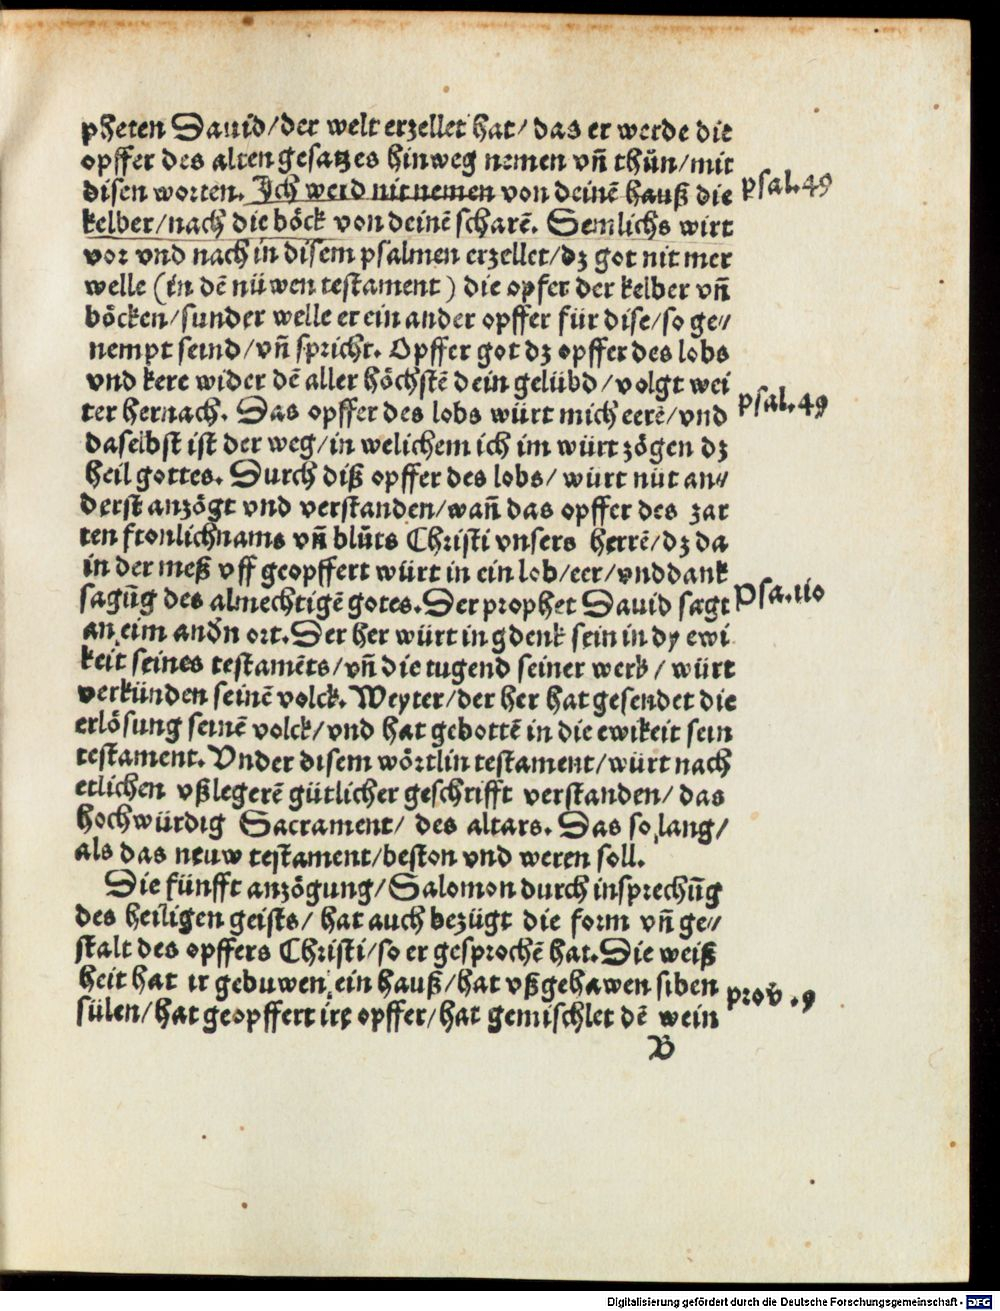 pheten Dauid/der welt erzellet hat/ das er werde die
opffer des alten gesatzes hinweg nemen vñ thůn/mit
disen worten. Ich werd nit nemen von deinẽ hauß die
psal.49
kelber/nach die böck von deinẽ scharẽ. Semlichs wirt
vor vnd nach in disem psalmen erzellet/dz got nit mer
welle (in dẽ nüwen testament) die opfer der kelber vñ
böcken/sunder welle er ein ander opffer für dise/so ge//
nempt seind/vñ spricht. Opffer got dz opffer des lobs
vnd kere wider dẽ aller höchstẽ dein gelübd/volgt wei
ter hernach. Das opffer des lobs würt mich eerẽ/vnd
psal.49
daselbst ist der weg/in welichem ich im würt zögen dz
heil gottes. Durch diß opffer des lobs/ würt nüt an//
derst anzögt vnd verstanden/wañ das opffer des zar
ten fronlichnams vñ blůts Christi vnsers herrẽ/dz da
in der meß vff geopffert würt in ein lob/eer/vnd dank
sagũg des almechtigẽ gotes. Der prophet Dauid sagt
Psa.110
an eim andn ort. Der her würt in gdenk sein in dy ewi
keit seines testamẽts/vñ die tugend seiner werk/ würt
verkünden seinẽ volck. Weyter/der her hat gesendet die
erlösung seinẽ volck/vnd hat gebottẽ in die ewikeit sein
testament. Vnder disem wörtlin testament/würt nach
etlichen vßlegerẽ gütlicher geschrifft verstanden/ das
hochwürdig Sacrament/ des altars. Das so lang/
als das neuw testament/beston vnd weren soll.
Die fünfft anzögung/Salomon durch insprechũg
des heiligen geists/ hat auch bezügt die form vñ ge//
stalt des opffers Christi/so er gesprochẽ hat. Die weiß
heit hat ir gebuwen ein hauß/hat vßgehawen siben
prov.9
sülen/hat geopffert ire opffer/hat gemischlet dẽ wein
B
Digitalisierung gefördert durch die Deutsche Forschungsgemeinschaft - DFG